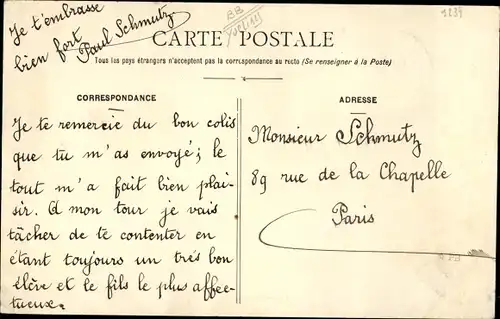 Je t'embrasse
bien fort
Paul Schmutz
1234
CARTE POSTALE
Tous les pays étrangers n'acceptent pas la correspondance au recto (Se renseigner à la Poste)
CORRESPONDANCE
Je te remercie du bon colis
que tu m'as envoyé; le
tout m'a fait bien plai-
sir. A mon tour je vais
tâcher de te contenter en
étant toujours un très bon
élève et le fils le plus affec-
tueux.
ADRESSE
Monsieur Schmutz
89 rue de la Chapelle
Paris